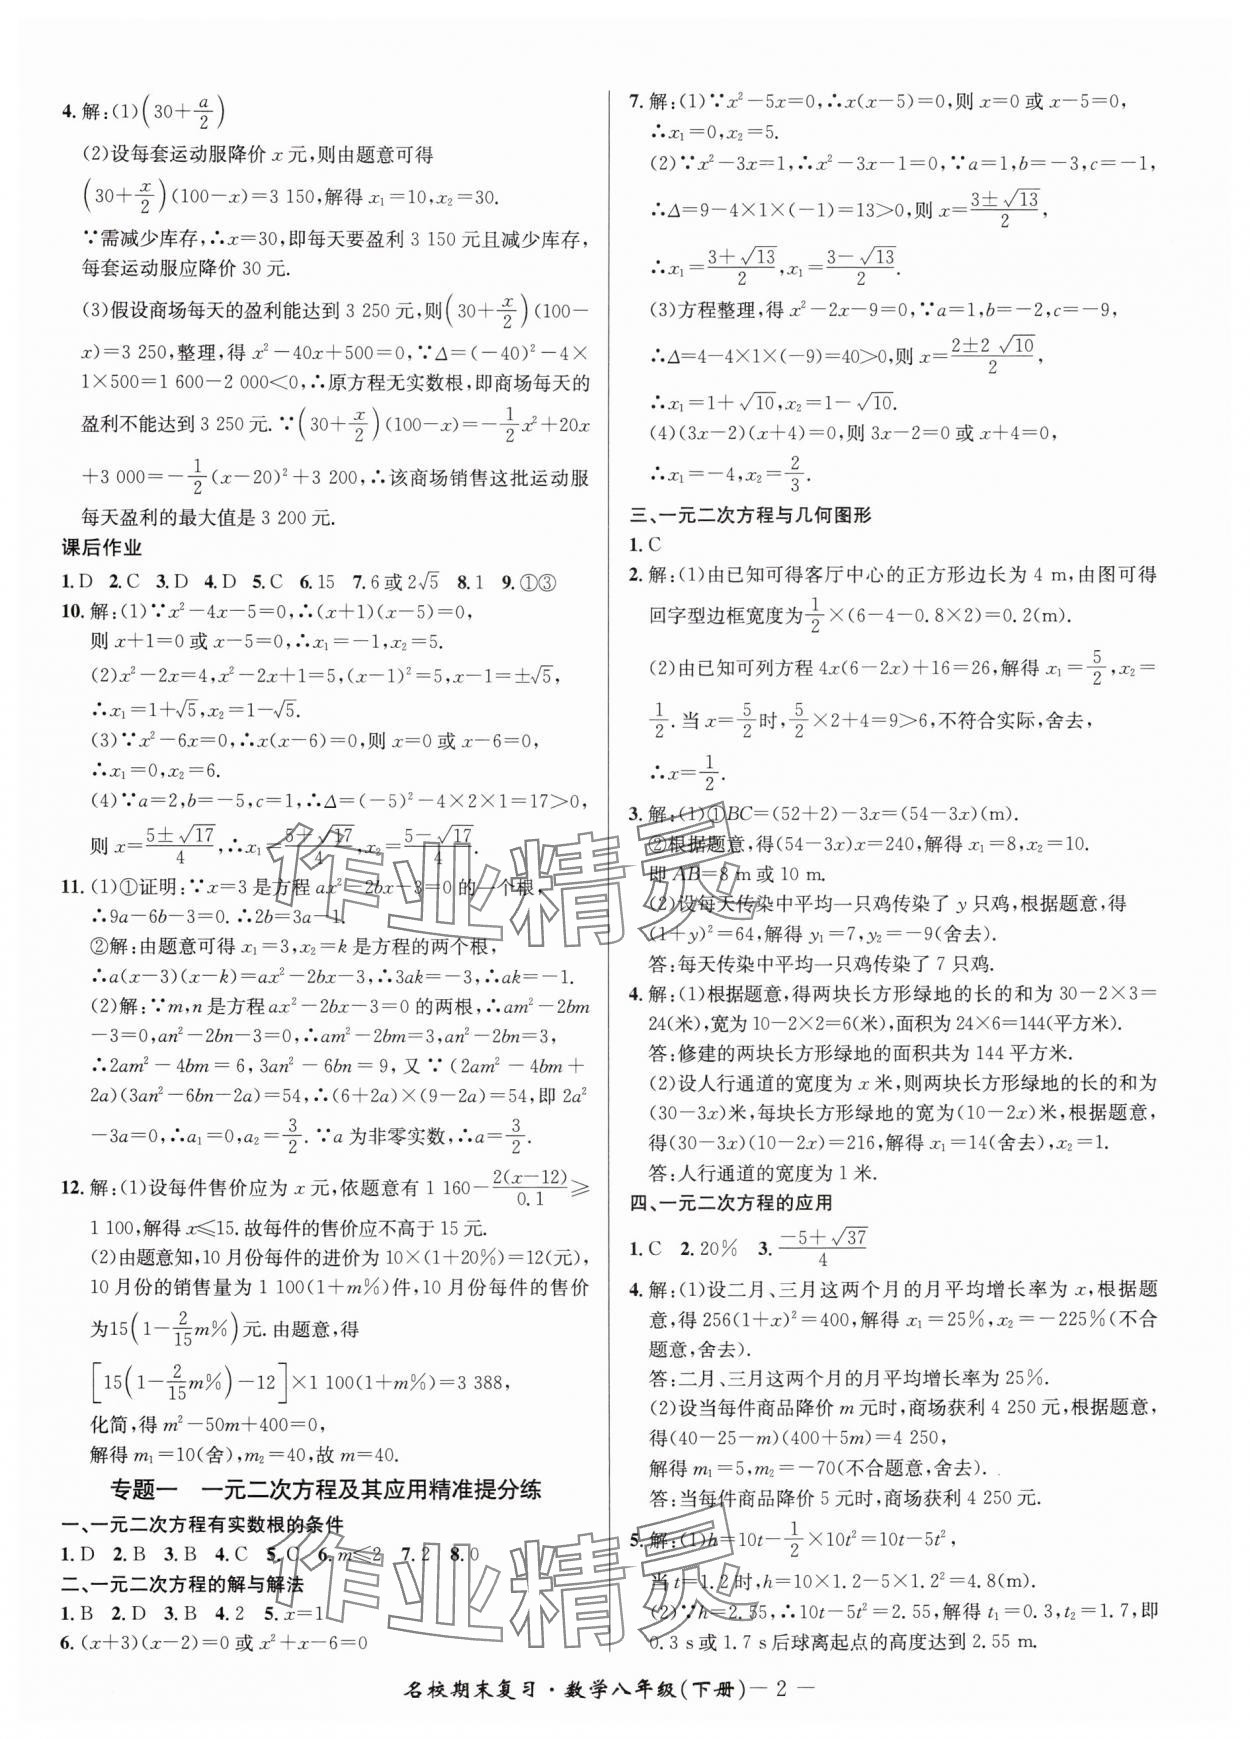 4. 解:(1)(30+a/2)
(2)设每套运动服降价 x 元,则由题意可得
(30+x/2)(100-x)=3 150,解得 x₁=10,x₂=30.
∵需减少库存,∴x=30,即每天要盈利 3 150 元且减少库存,
每套运动服应降价 30 元.
(3)假设商场每天的盈利能达到 3 250 元,则(30+x/2)(100-
x)=3 250,整理,得 x²-40x+500=0,∵Δ=(-40)²-4×
1×500=1 600-2 000<0,∴原方程无实数根,即商场每天的
盈利不能达到 3 250 元.∵(30+x/2)(100-x)=-1/2x²+20x
+3 000=-1/2(x-20)²+3 200,∴该商场销售这批运动服
每天盈利的最大值是 3 200 元.
课后作业
1. D 2. C 3. D 4. D 5. C 6. 15 7. 6 或 2√5 8. 1 9. ①③
10. 解:(1)∵x²-4x-5=0,∴(x+1)(x-5)=0,
则 x+1=0 或 x-5=0,∴x₁=-1,x₂=5.
(2)x²-2x=4,x²-2x+1=5,(x-1)²=5,x-1=±√5,
∴x₁=1+√5,x₂=1-√5.
(3)∵x²-6x=0,∴x(x-6)=0,则 x=0 或 x-6=0,
∴x₁=0,x₂=6.
(4)∵a=2,b=-5,c=1,∴Δ=(-5)²-4×2×1=17>0,
则 x=(5±√17)/4,∴x₁=(5+√17)/4,x₂=(5-√17)/4.
11. (1)①证明:∵x=3 是方程 ax²-2bx-3=0 的一个根,
∴9a-6b-3=0.∴2b=3a-1.
②解:由题意可得 x₁=3,x₂=k 是方程的两个根,
∴a(x-3)(x-k)=ax²-2bx-3,∴3ak=-3,∴ak=-1.
(2)解:∵m,n 是方程 ax²-2bx-3=0 的两根,∴am²-2bm
-3=0,an²-2bn-3=0,∴am²-2bm=3,an²-2bn=3,
∴2am²-4bm=6,3an²-6bn=9,又∵(2am²-4bm+
2a)(3an²-6bn-2a)=54,∴(6+2a)×(9-2a)=54,即 2a²
-3a=0,∴a₁=0,a₂=3/2.∵a 为非零实数,∴a=3/2.
12. 解:(1)设每件售价应为 x 元,依题意有 1 160-2(x-12)/0.1≥
1 100,解得 x≤15.故每件的售价应不高于 15 元.
(2)由题意知,10 月份每件的进价为 10×(1+20%)=12(元),
10 月份的销售量为 1 100(1+m%)件,10 月份每件的售价
为15(1-2/15m%)元.由题意,得
[15(1-2/15m%)-12]×1 100(1+m%)=3 388,
化简,得 m²-50m+400=0,
解得 m₁=10(舍),m₂=40,故 m=40.
专题一 一元二次方程及其应用精准提分练
一、一元二次方程有实数根的条件
1. D 2. B 3. B 4. C 5. C 6. m≤2 7. 2 8. 0
二、一元二次方程的解与解法
1. B 2. D 3. B 4. 2 5. x=1
6. (x+3)(x-2)=0 或 x²+x-6=0
7. 解:(1)∵x²-5x=0,∴x(x-5)=0,则 x=0 或 x-5=0,
∴x₁=0,x₂=5.
(2)∵x²-3x=1,∴x²-3x-1=0,∵a=1,b=-3,c=-1,
∴Δ=9-4×1×(-1)=13>0,则 x=(3±√13)/2,
∴x₁=(3+√13)/2,x₁=(3-√13)/2.
(3)方程整理,得 x²-2x-9=0,∵a=1,b=-2,c=-9,
∴Δ=4-4×1×(-9)=40>0,则 x=(2±2√10)/2,
∴x₁=1+√10,x₂=1-√10.
(4)(3x-2)(x+4)=0,则 3x-2=0 或 x+4=0,
∴x₁=-4,x₂=2/3.
三、一元二次方程与几何图形
1. C
2. 解:(1)由已知可得客厅中心的正方形边长为 4 m,由图可得
回字型边框宽度为1/2×(6-4-0.8×2)=0.2(m).
(2)由已知可列方程 4x(6-2x)+16=26,解得 x₁=5/2,x₂=
1/2.当 x=5/2时,5/2×2+4=9>6,不符合实际,舍去,
∴x=1/2.
3. 解:(1)①BC=(52+2)-3x=(54-3x)(m).
②根据题意,得(54-3x)x=240,解得 x₁=8,x₂=10.
即 AB=8 m 或 10 m.
(2)设每天传染中平均一只鸡传染了 y 只鸡,根据题意,得
(1+y)²=64,解得 y₁=7,y₂=-9(舍去).
答:每天传染中平均一只鸡传染了 7 只鸡.
4. 解:(1)根据题意,得两块长方形绿地的长的和为 30-2×3=
24(米),宽为 10-2×2=6(米),面积为 24×6=144(平方米).
答:修建的两块长方形绿地的面积共为 144 平方米.
(2)设人行通道的宽度为 x 米,则两块长方形绿地的长的和为
(30-3x)米,每块长方形绿地的宽为(10-2x)米,根据题意,
得(30-3x)(10-2x)=216,解得 x₁=14(舍去),x₂=1.
答:人行通道的宽度为 1 米.
四、一元二次方程的应用
1. C 2. 20% 3. (-5+√37)/4
4. 解:(1)设二月、三月这两个月的月平均增长率为 x,根据题
意,得 256(1+x)²=400,解得 x₁=25%,x₂=-225%(不合
题意,舍去).
答:二月、三月这两个月的月平均增长率为 25%.
(2)设当每件商品降价 m 元时,商场获利 4 250 元,根据题意,
得(40-25-m)(400+5m)=4 250,
解得 m₁=5,m₂=-70(不合题意,舍去).
答:当每件商品降价 5 元时,商场获利 4 250 元.
5. 解:(1)h=10t-1/2×10t²=10t-5t²,
当 t=1.2时,h=10×1.2-5×1.2²=4.8(m).
(2)∵h=2.55,∴10t-5t²=2.55,解得 t₁=0.3,t₂=1.7,即
0.3 s 或 1.7 s 后球离起点的高度达到 2.55 m.
名校期末复习·数学八年级(下册)— 2 —
作业精灵
作业精灵